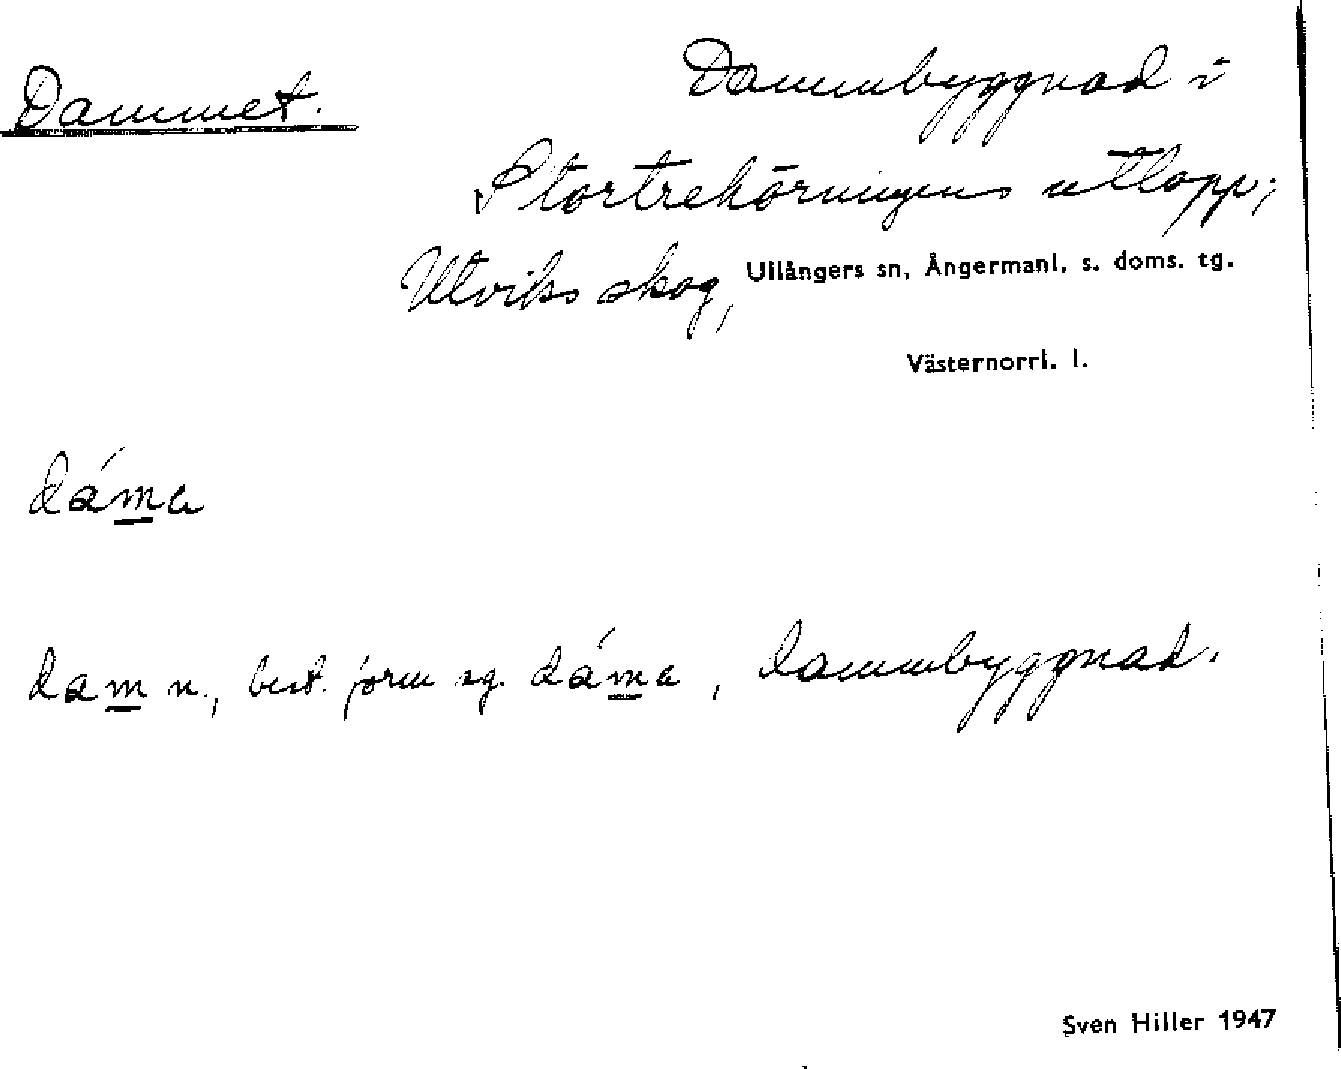 Dammet.
Dammbyggnad i
Stortrehörningens utlopp,
Utviks skog, Ullångers sn, Ångermanl. s. doms. tg.
Västernorrl. l.
dám̲a
dam̲ n., best. form sg. dám̲a, dammbyggnad.
Sven Hiller 1947